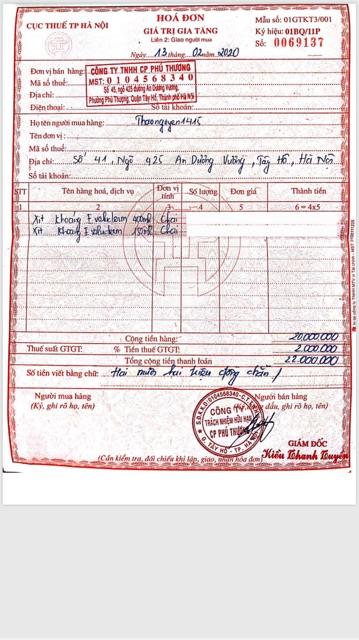 CỤC THUẾ TP HÀ NỘI
HOÁ ĐƠN
GIÁ TRỊ GIA TĂNG
Liên 2: Giao người mua
Ngày 13 tháng 02 năm 2020
Mẫu số: 01GTKT3/001
Ký hiệu: 01BQ/11P
Số: 0069137
Đơn vị bán hàng:
Mã số thuế:
Địa chỉ:
Điện thoại: Số tài khoản:
CÔNG TY TNHH CP PHÚ THƯƠNG
MST: 0104568340
Số 45, ngõ 425 đường An Dương Vương,
Phường Phú Thượng, Quận Tây Hồ, Thành phố Hà Nội
Họ tên người mua hàng: Thaonguyen1415
Tên đơn vị:
Mã số thuế:
Địa chỉ: Số 41, Ngõ 425 An Dương Vương, Tây Hồ, Hà Nội
Số tài khoản:
STT Tên hàng hoá, dịch vụ Đơn vị tính Số lượng Đơn giá Thành tiền
1 2 3 4 5 6 = 4x5
Xịt Khoáng Evoluderm 400ml Chai
Xịt Khoáng Evoluderm 150ml Chai
Cộng tiền hàng: 20.000.000
Thuế suất GTGT: % Tiền thuế GTGT: 2.000.000
Tổng cộng tiền thanh toán 22.000.000
Số tiền viết bằng chữ: Hai mươi hai triệu đồng chẵn /
Người mua hàng
(Ký, ghi rõ họ, tên)
Người bán hàng
(Ký, đóng dấu, ghi rõ họ, tên)
CÔNG TY
TRÁCH NHIỆM HỮU HẠN
CP PHÚ THƯƠNG
Q. TÂY HỒ - TP. HÀ NỘI
GIÁM ĐỐC
Kiều Thanh Huyền
(Cần kiểm tra, đối chiếu khi lập, giao, nhận hóa đơn)